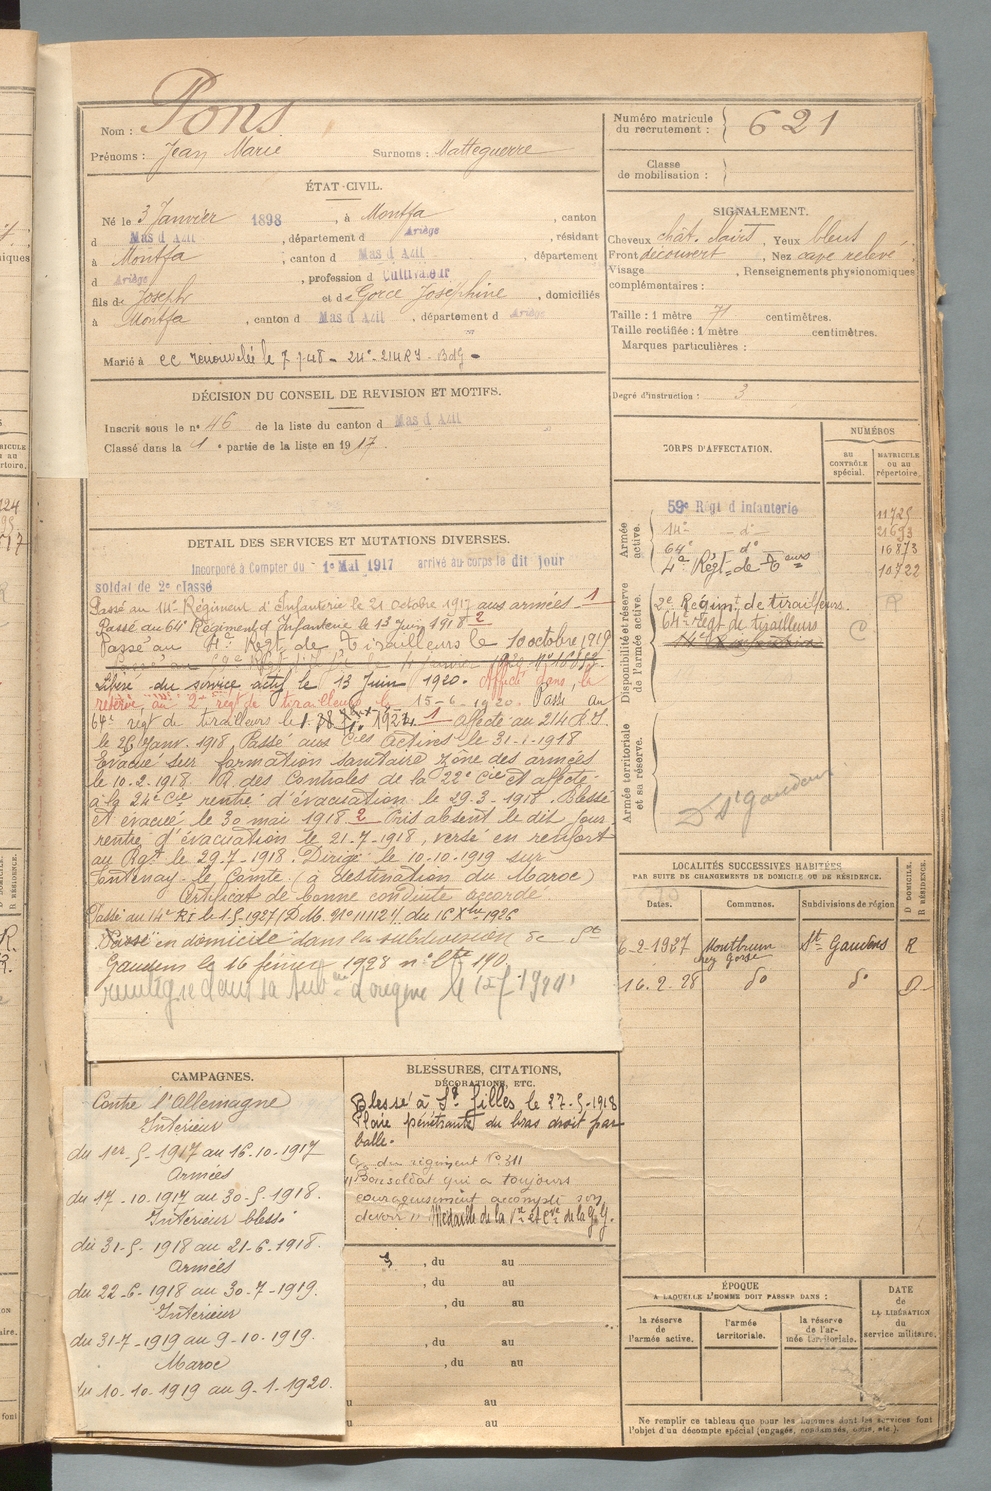 Nom : Pons
Prénoms : Jean Marie Surnoms : Matteguerre
ÉTAT-CIVIL.
Né le 3 Janvier 1898, à Montfa, canton
d Mas d Azil, département d Ariège, résidant
à Montfa, canton d Mas d Azil, département
d Ariège, profession d Cultivateur
fils de Joseph et de Gorce Joséphine, domiciliés
à Montfa, canton d Mas d Azil, département d Ariège
Marié à CC renouvelée le 7 - 24e - 214 RI - BdG -
DÉCISION DU CONSEIL DE REVISION ET MOTIFS.
Inscrit sous le n° 46 de la liste du canton d Mas d Azil
Classé dans la 1e partie de la liste en 1917.
DETAIL DES SERVICES ET MUTATIONS DIVERSES.
Incorporé à Compter du 1er Mai 1917 arrivé au corps le dit jour
soldat de 2e classe
Passé au 14e Régiment d'Infanterie le 21 octobre 1917 aux armées 1
Passé au 64e Régiment d'Infanterie le 13 Juin 1918 2
Passé au 4e Régt de Tirailleurs le 10 octobre 1919
Libéré du service actif le 13 Juin 1920. Affecté dans la
réserve au 2e régt de tirailleurs le 15-6-1920. Passé au
64e régt de tirailleurs le 1. 1 affecté au 214 R.I.
le 26 Janv. 1918 Passé aux Cies Actives le 31-1-1918
Evacué sur formation sanitaire zone des armées
le 10-2-1918. R des Controles de la 22e Cie et affecté
à la 24e Cie rentré d'évacuation le 29-3-1918. Blessé
et évacué le 30 mai 1918 2 Pris absent le dit jour
rentré d'évacuation le 21-7-1918, versé en renfort
au Rgt le 29-7-1918. Dirigé le 10-10-1919 sur
Fontenay-le Comte (à destination du Maroc)
Certificat de bonne conduite accordé.
Passé au 14e RI le 1-5-1927 (D.M. N° 11112 du 16 Xbre 1926
Passé en domicile dans la subdivision de St
Gaudens le 16 février 1928 n° 190
réintégré dans sa Subon d'origine le
CAMPAGNES.
Contre l'Allemagne
Intérieur
du 1er-5-1917 au 16-10-1917
Armées
du 17-10-1917 au 30-5-1918.
Intérieur blessé
du 31-5-1918 au 21-6-1918.
Armées
du 22-6-1918 au 30-7-1919.
Intérieur
du 31-7-1919 au 9-10-1919.
Maroc
du 10-10-1919 au 9-1-1920.
BLESSURES, CITATIONS,
DÉCORATIONS, ETC.
Blessé à St Gilles le 27-5-1918
Plaie pénétrante du bras droit par
balle.
du régiment N° 311
"Bon soldat qui a toujours
courageusement accompli son
devoir" Médaille de la Vre et Cve de la Gde G.
, du au
, du au
, du au
, du au
, du au
u au
u au
Numéro matricule
du recrutement : 621
Classe
de mobilisation :
SIGNALEMENT.
Cheveux chât. clairs, Yeux bleus
Front découvert, Nez cave relevé,
Visage , Renseignements physionomiques
complémentaires :
Taille : 1 mètre 71 centimètres.
Taille rectifiée : 1 mètre centimètres.
Marques particulières :
Degré d'instruction : 3
CORPS D'AFFECTATION.
NUMÉROS
AU CONTRÔLE spécial.
MATRICULE ou au répertoire.
Armée active.
59e Régt d Infanterie 11725
14e d° 21693
64e d° 16873
4e Régt de Teurs 10722
Disponibilité et réserve de l'armée active.
2e Régimt de tirailleurs.
64e régt de tirailleurs C
14e
Armée territoriale et sa réserve.
D St Gaudens
LOCALITÉS SUCCESSIVES HABITÉES
PAR SUITE DE CHANGEMENTS DE DOMICILE OU DE RÉSIDENCE.
Dates. Communes. Subdivisions de région
D DOMICILE.
R RÉSIDENCE.
6-2-1927 Montbrun St Gaudens R
chez Gorse
16-2-28 d° d° D
ÉPOQUE
A LAQUELLE L'HOMME DOIT PASSER DANS :
la réserve de l'armée active.
l'armée territoriale.
la réserve de l'armée territoriale.
DATE
de
LA LIBÉRATION
du
service militaire.
Ne remplir ce tableau que pour les hommes dont les services font
l'objet d'un décompte spécial (engagés, condamnés, omis, etc.).